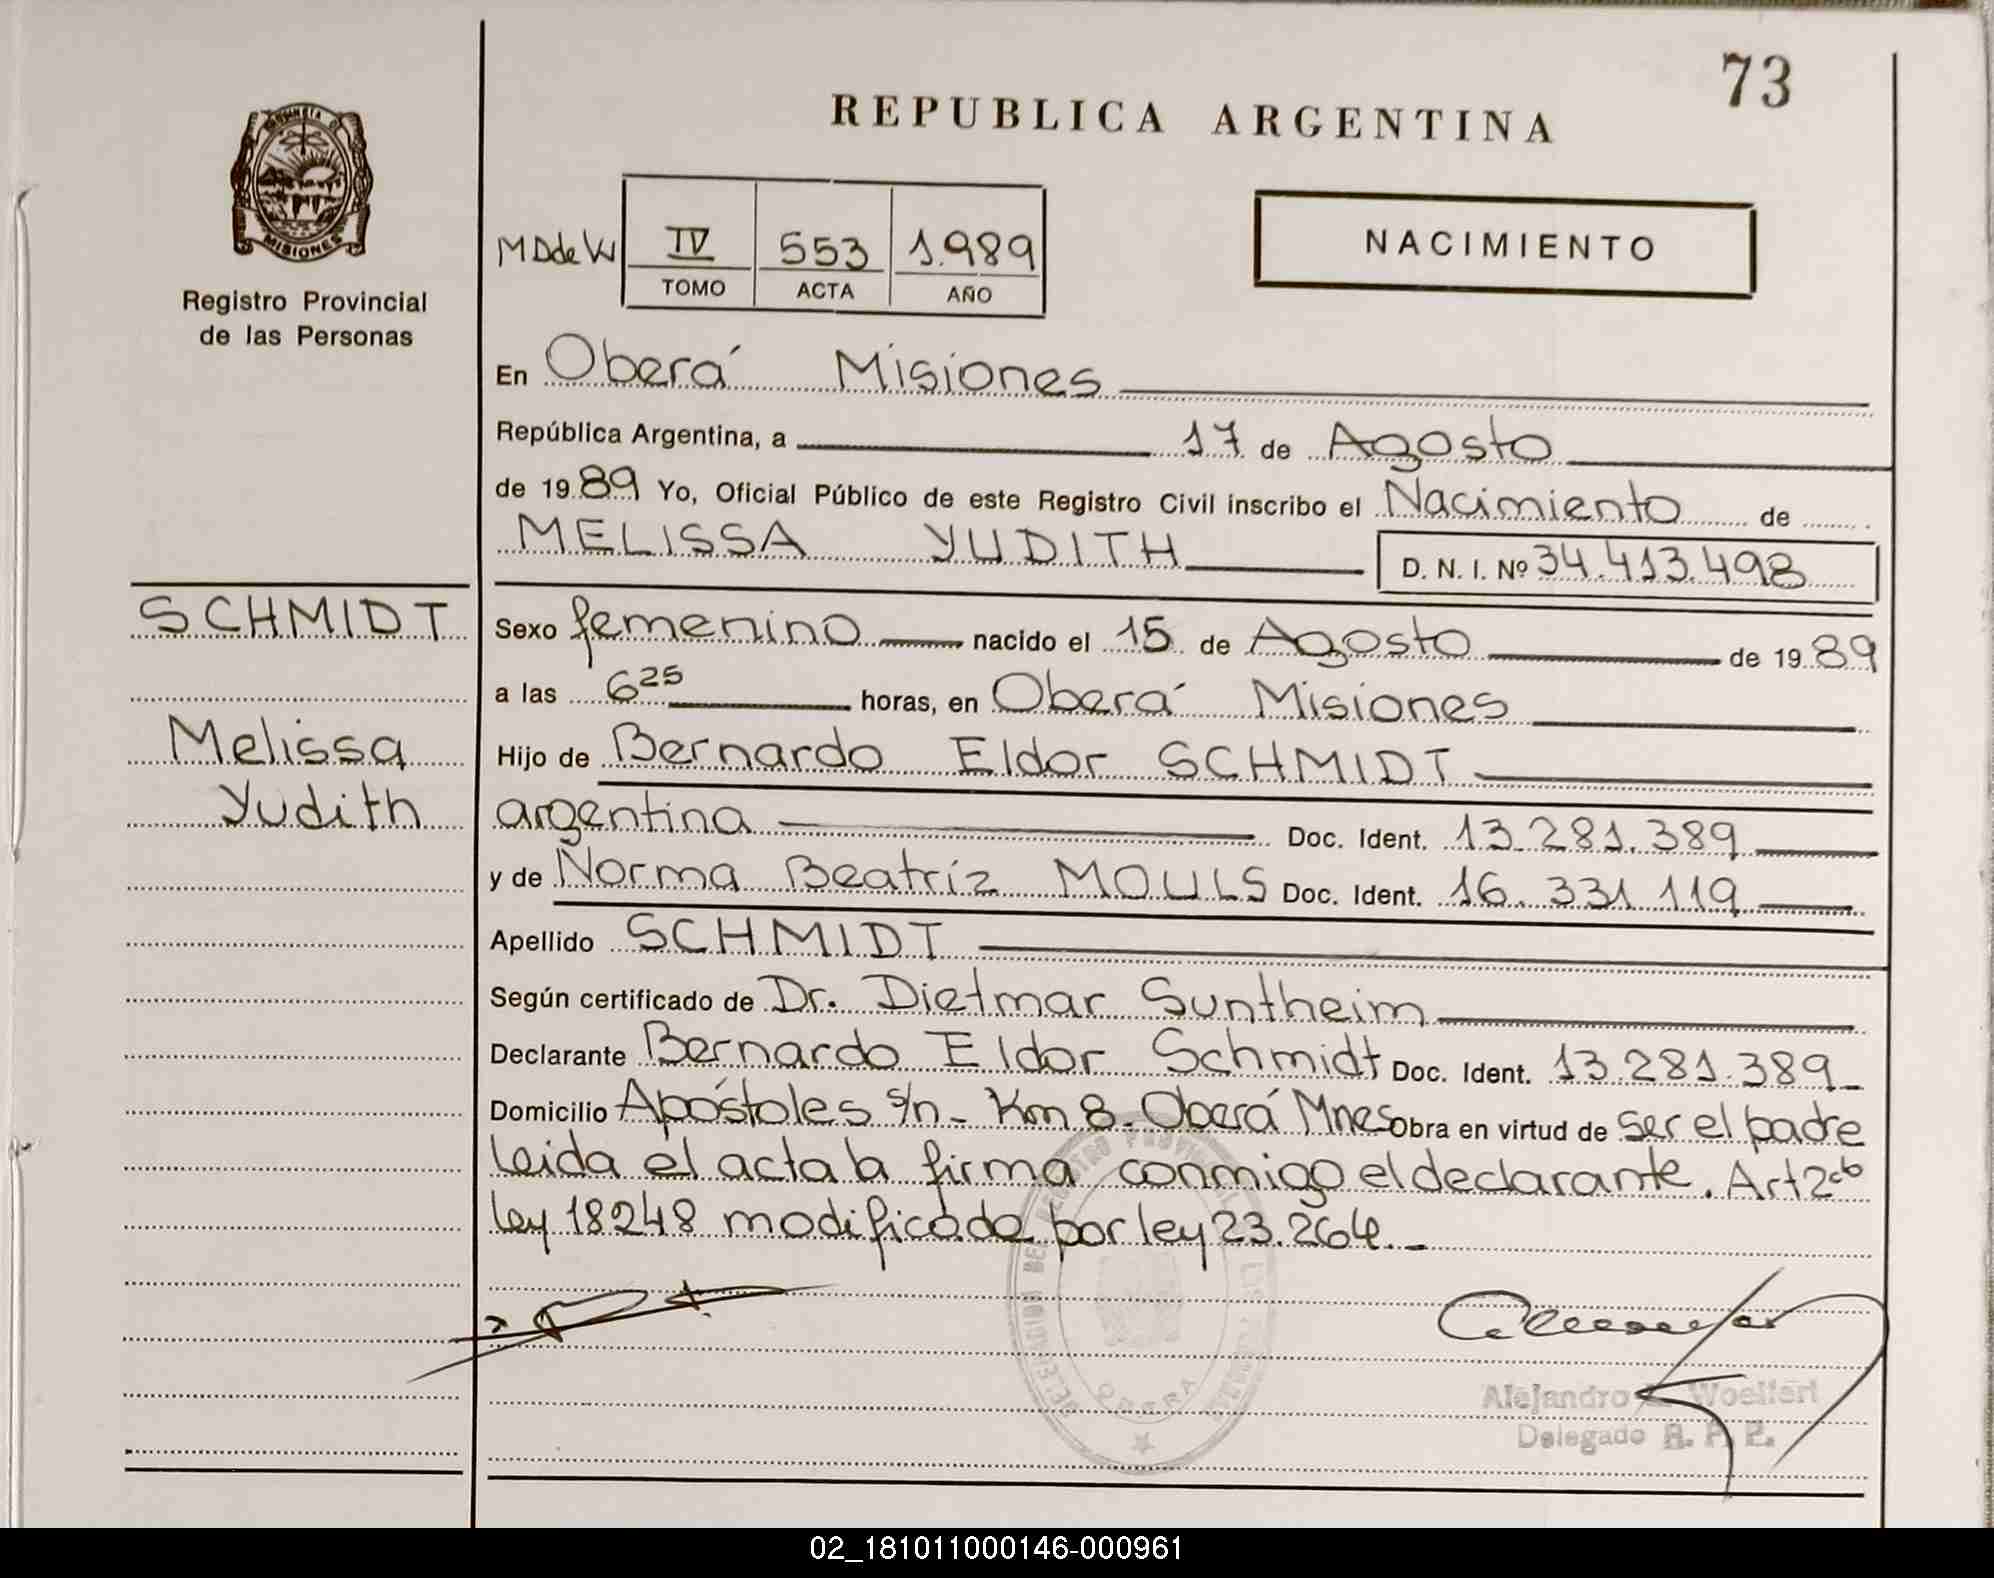 73
REPUBLICA ARGENTINA
MISIONES
Registro Provincial
de las Personas
MDdeW IV 553 1.989
TOMO ACTA AÑO
NACIMIENTO
En Oberá Misiones
República Argentina, a 17 de Agosto
de 1989 Yo, Oficial Público de este Registro Civil inscribo el Nacimiento de
MELISSA YUDITH D. N. I. Nº 34.413.498
SCHMIDT
Melissa
Yudith
Sexo femenino nacido el 15 de Agosto de 1989
a las 6 25 horas, en Oberá Misiones
Hijo de Bernardo Eldor SCHMIDT
argentina Doc. Ident. 13.281.389
y de Norma Beatríz MOULS Doc. Ident. 16.331.119
Apellido SCHMIDT
Según certificado de Dr. Dietmar Suntheim
Declarante Bernardo Eldor Schmidt Doc. Ident. 13.281.389
Domicilio Apóstoles s/n - Km 8 - Oberá Mnes Obra en virtud de ser el padre
Leida el acta la firma conmigo el declarante. Art 2
ley 18248 modificada por ley 23.264.-
DELEGACION DEL REGISTRO PROVINCIAL
OBERA
Alejandro Woelfert
Delegado R. P. P.
02_181011000146-000961